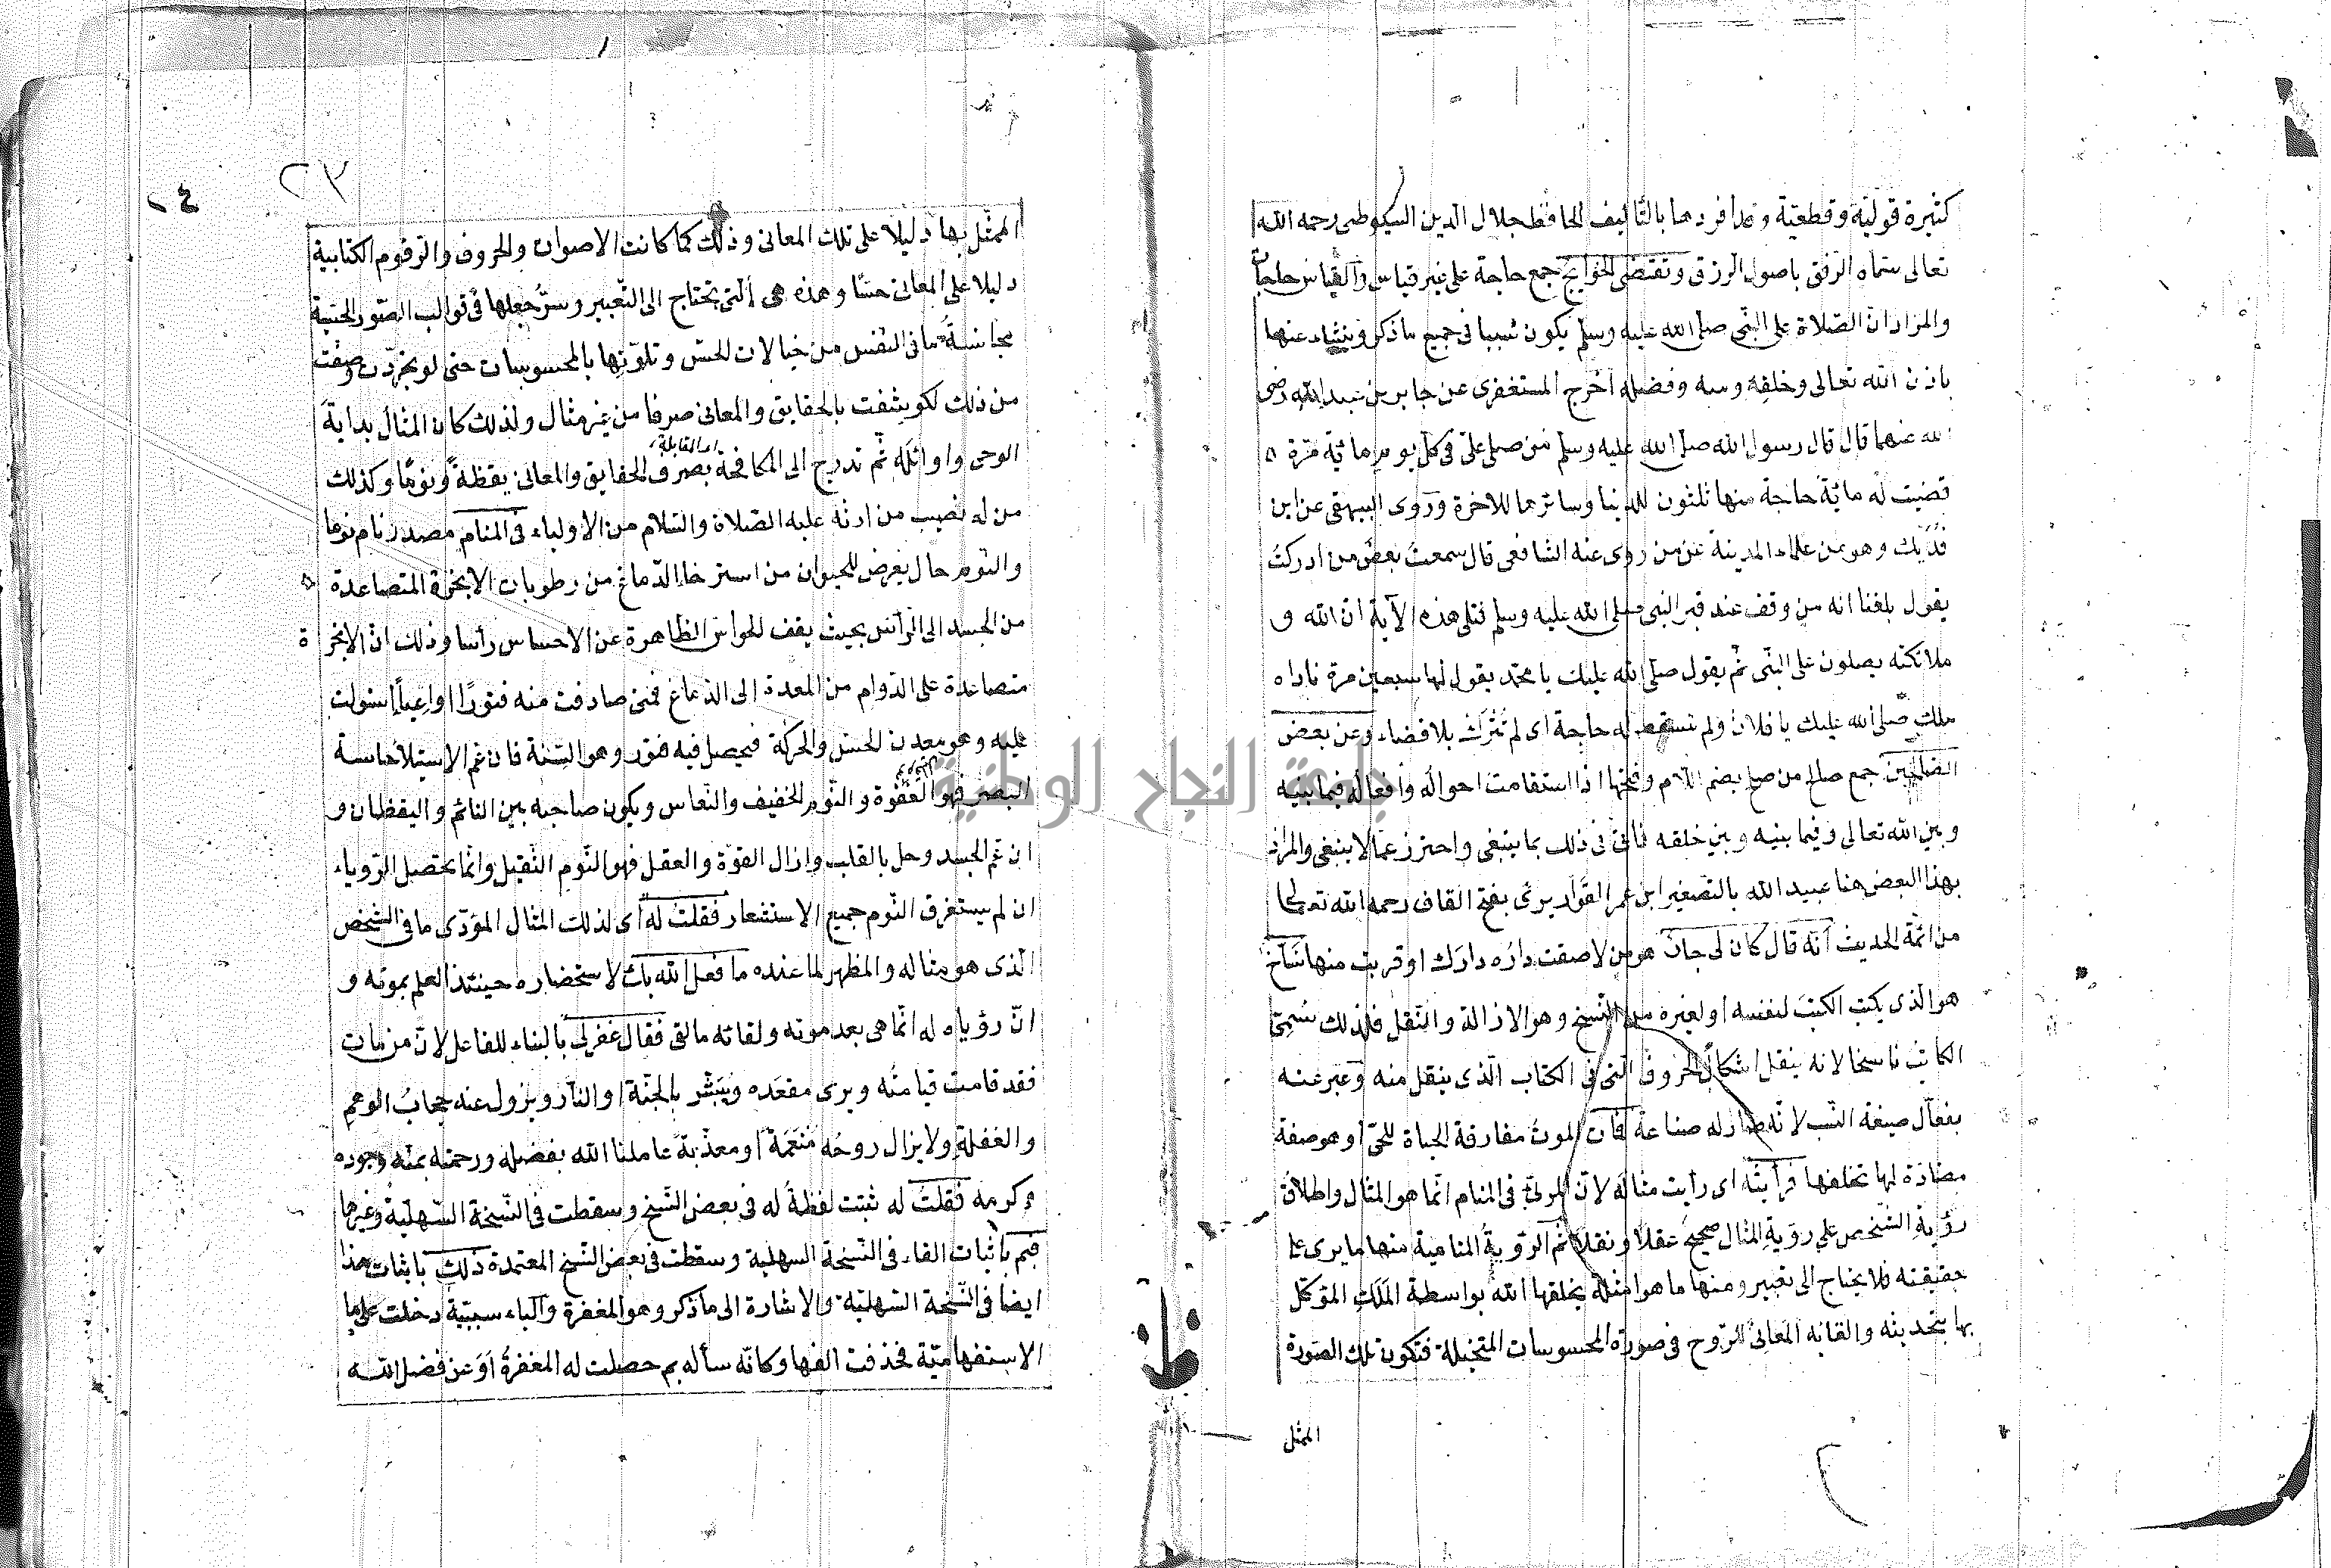 كثيرة قولية وقطعية وقد افردها بالتاليف الحافظ جلال الدين السيوطي رحمه الله
تعالى سماه الرفق باصول الرزق وتقضى الحوايج جمع حاجة على غير قياس والقياس حاجات
والمراد ان الصلاة على النبى صلى الله عليه وسلم يكون سببا فى جميع ما ذكر وينشاء عنها
باذن الله تعالى وخلقه ومنه وفضله اخرج المستغفرى عن جابر بن عبد الله رضى
الله عنهما قال قال رسول الله صلى الله عليه وسلم من صلى علىّ فى كل يوم مائية مرة
قضيت له مائية حاجة منها ثلثون للدنيا وسائرها للاخرة وروى البيهقى عن ابن
فديك وهو من علماء المدينة عن من روى عنه الشافعى قال سمعت بعض من ادركت
يقول بلغنا انه من وقف عند قبر النبى صلى الله عليه وسلم فتلى هذه الآية ان الله و
ملائكته يصلون على النبى ثم يقول صلى الله عليك يا محمد يقولها سبعين مرة ناداه
ملك صلى الله عليك يا فلان ولم تسقط له حاجة اى لم تترك بلا قضاء وعن بعض
الصالحين جمع صالح من صلح بضم اللام وفتحها اذا استقامت احواله وافعاله فيما بينه
وبين الله تعالى وفيما بينه وبين خلقه فاتى فى ذلك بما ينبغى واحترز عما لا ينبغى والمراد
بهذا البعض هنا عبيد الله بالتصغير ابن عمر القواريرى بفتح القاف رحمه الله تعالى
من ائمة الحديث انه قال كان لى جار هو من لاصقت داره دارك او قربت منها نساخ
هو الذى يكتب الكتب لنفسه او لغيره من النسخ وهو الازالة والنقل فلذلك سمى
الكاتب ناسخا لانه ينقل اشكال الحروف التى فى الكتاب الذى ينقل منه وعبر عنه
بفعال صيغة النسب لانه صار له صناعة فمات الموت مفارقة الحياة للحى او هو صفة
مضادة لها تخلفها فرأيته اى رأيت مثاله لان المرئى فى المنام انما هو المثال واطلاق
رؤية الشخص على روية المثال صحيح عقلا ونقلا ثم الروية المنامية منها ما يرى على
حقيقته فلا يحتاج الى تعبير ومنها ما هو امثلة يخلقها الله بواسطة الملك الموكل
بها بتحديثه والقائه المعانى للروح فى صورة المحسوسات المتخيلة فتكون تلك الصورة
الممثل
٢٣
الممثل بها دليلا على تلك المعانى وذلك كما كانت الاصوات والحروف والرقوم الكتابية
دليلا على المعانى حسّا وهذه هى التى تحتاج الى التعبير وسرّ جعلها فى قوالب الصور الحسية
مجانسة ما فى النفس من خيالات الحس وتلونها بالمحسوسات حتى لو تجردت وصفت
من ذلك لكوشفت بالحقايق والمعانى صرفا من غير مثال ولذلك كان المثال بداية
الوحى واوائله ثم تدرج الى المكافحة بصرف الحقايق والمعانى يقظة ونوما وكذلك
اى المقابلة
من له نصيب من ارثه عليه الصلاة والسلام من الاولياء فى المنام مصدر نام نوما
والنوم حال يعرض للحيوان من استرخا الدماغ من رطوبات الابخرة المتصاعدة
من الجسد الى الرأس بحيث يقف الحواس الظاهرة عن الاحساس رأسا وذلك ان الابخرة
متصاعدة على الدوام من المعدة الى الدماغ فمتى صادفت منه فتورا او اعياء استولت
عليه وهو معدن الحس والحركة فيحصل فيه فتور وهو السنة فان عم الاستيلا حاسة
البصر فهو الغفوة والنوم الخفيف والنعاس ويكون صاحبه بين النائم واليقظان و
ان عم الجسد وحل بالقلب وازال القوة والعقل فهو النوم الثقيل وانما يحتصل الروياء
ان لم يستغرق النوم جميع الاستشعار فقلت له اى لذلك المثال المؤدى ما فى الشخص
الذى هو مثاله والمظهر لما عنده ما فعل الله بك لاستحضاره حينئذ العلم بموته و
ان رؤياه له انما هى بعد موته ولقائه ما لقى فقال غفر لى بالبناء للفاعل لان من مات
فقد قامت قيامته ويرى مقعده ويبشر بالجنة او النار ويزول عنه حجاب الوهم
والغفلة ولا يزال روحه منعمة او معذبة عاملنا الله بفضله ورحمته بمنه وجوده
وكرمه فقلت له ثبتت لفظة له فى بعض النسخ وسقطت فى النسخة السهلية وغيرها
فبم باثبات الفاء فى النسخة السهلية وسقطت فى بعض النسخ المعتمدة ذلك باثبات هذا
ايضا فى النسخة السهلية والاشارة الى ما ذكر وهو المغفرة والباء سببية دخلت على ما
الاستفهامية فحذفت الفها وكانه سأله بم حصلت له المغفرة أو عن فضل الله
جامعة النجاح الوطنية